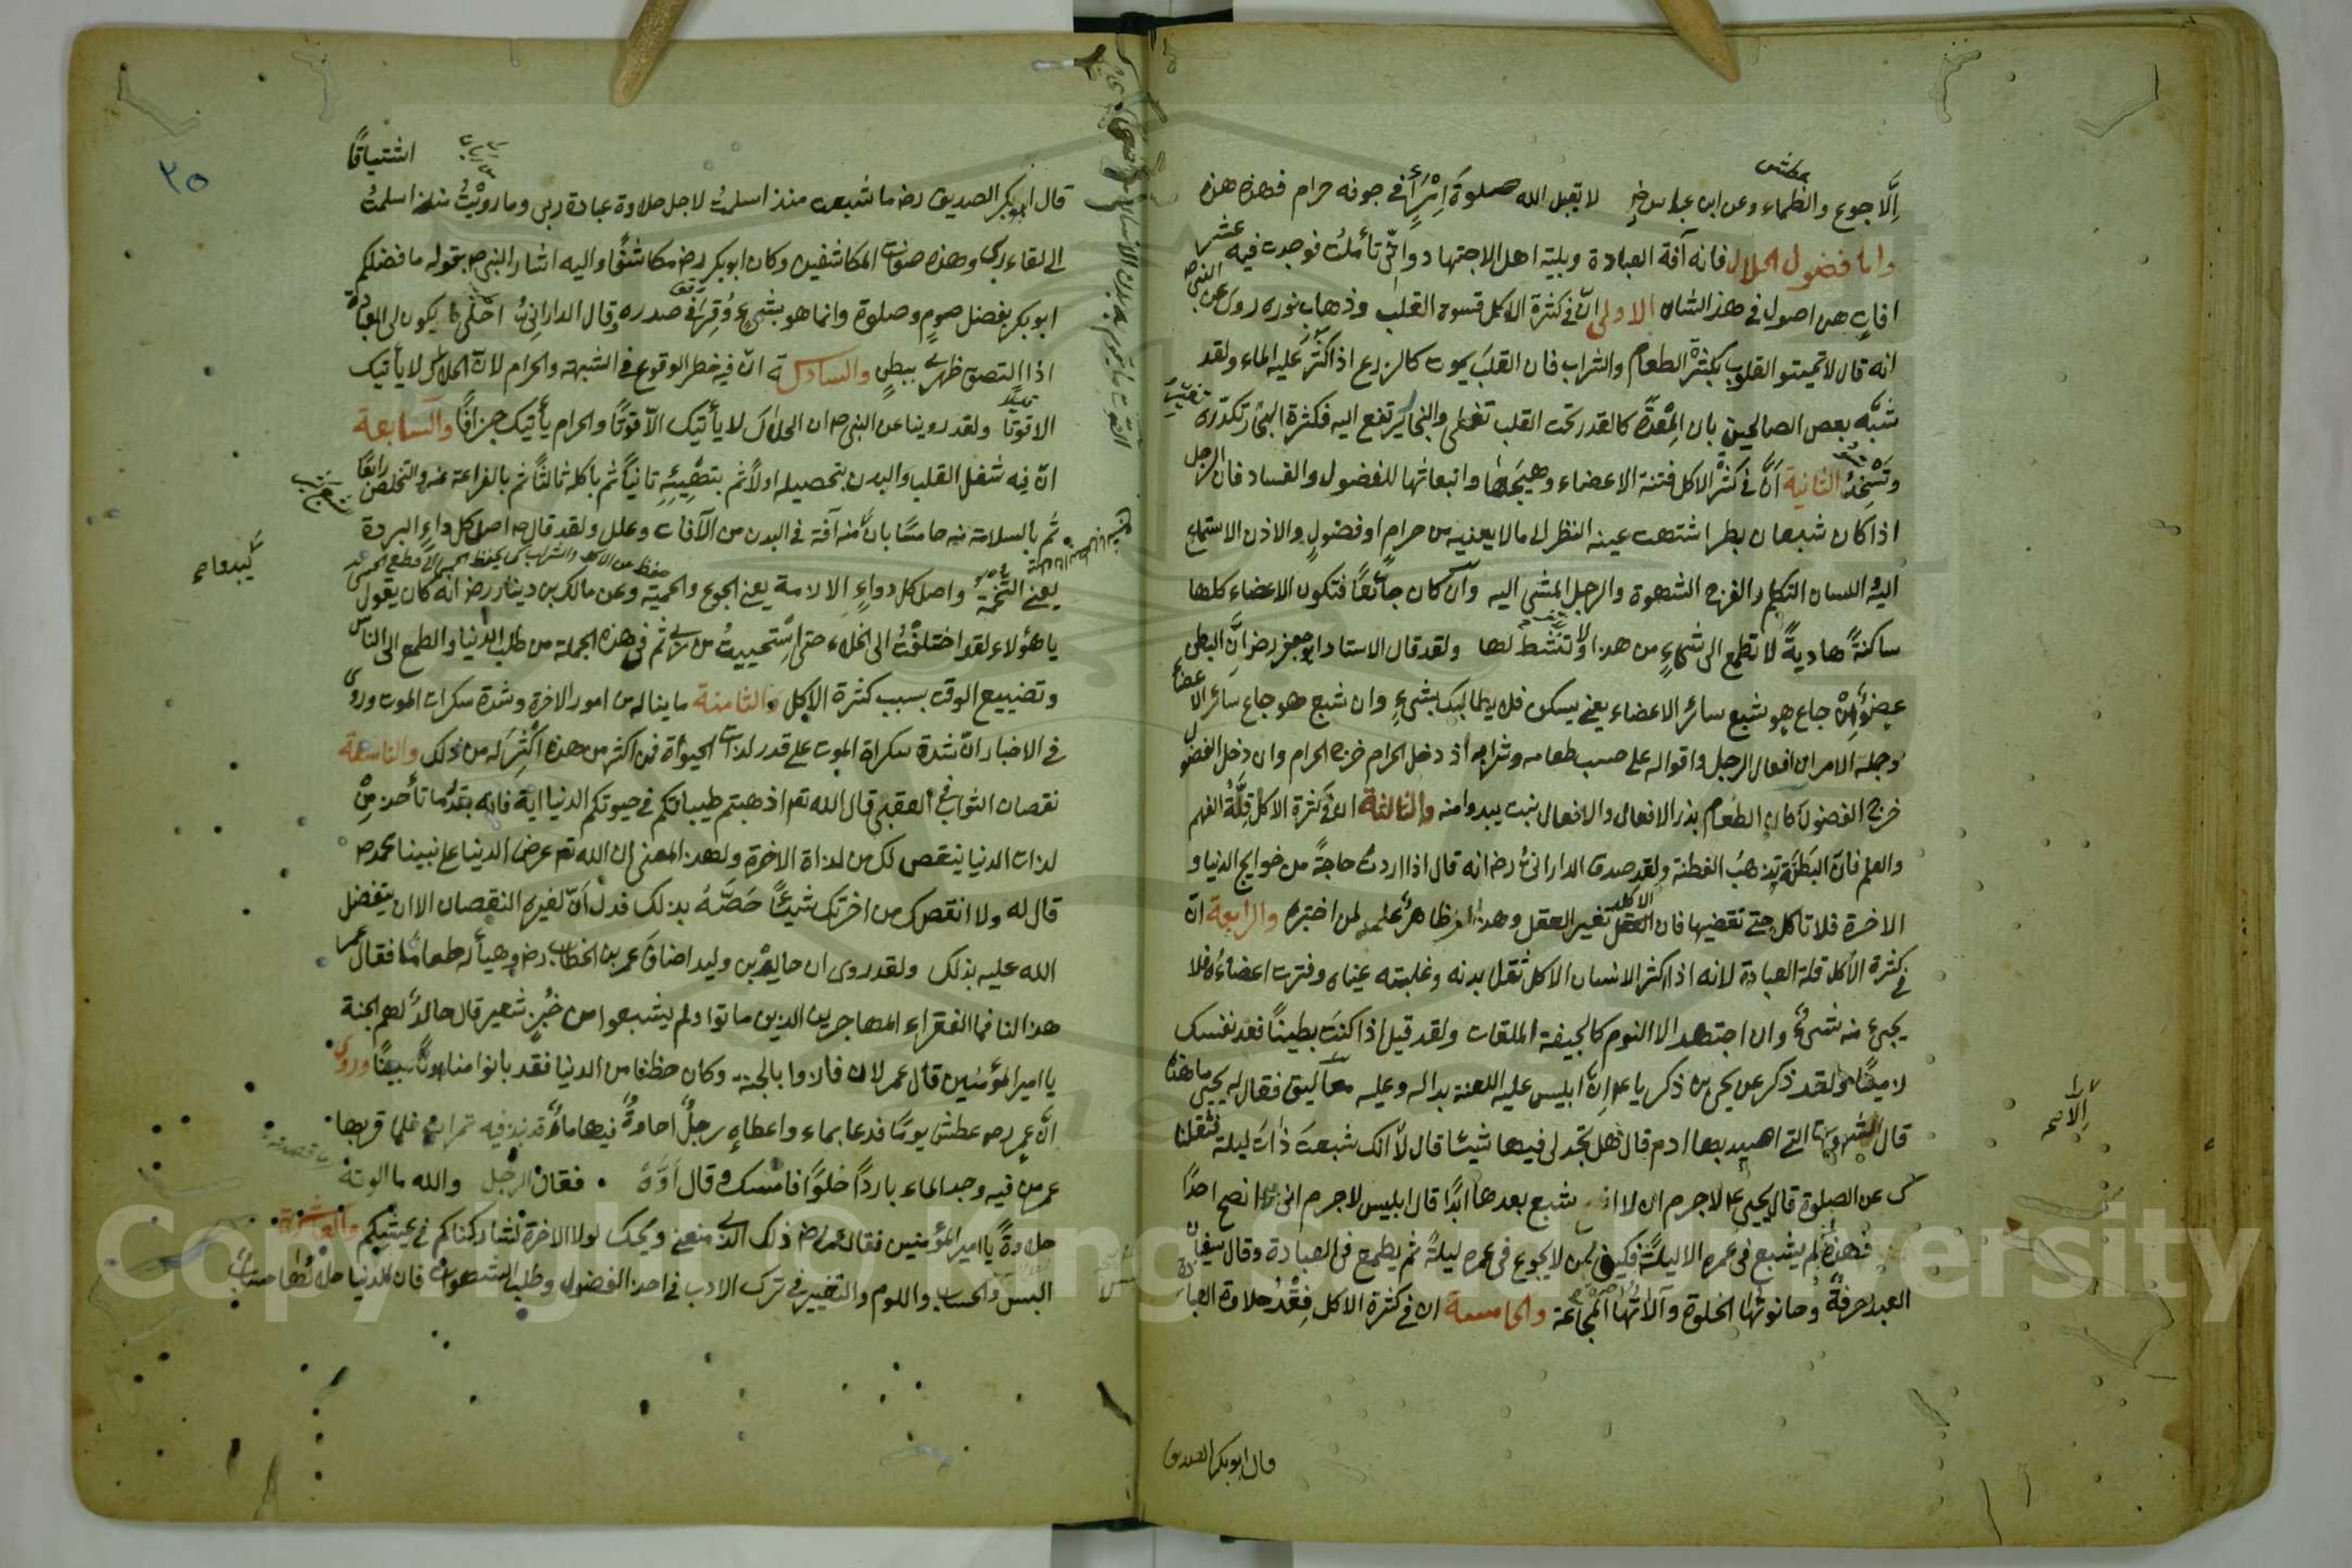 عطش
اِلَّا جوع والظماء وعن ابن عباس رض لا يقبل الله صلوةَ اِمْرَأٍ في جوفه حرام فهذه هذه
واما فضول الحلال فانه آفة العبادة وبلية اهل الاجتهاد وانّى تأملت فوجدت فيه عشر
افات هن اصول في هذا الشان الاولى انّ في كثرة الاكل قسوة القلب وذهاب نوره روى عن النبى ص
انه قال لا تميتو القلوب بكثرة الطعام والشراب فان القلب يموت كالزرع اذا اكثر عليه الماء ولقد
شبّه بعص الصالحين بان المِعْدَة كالقدر تحت القلب تغلى والبخار يرتفع اليه فكثرة البخار تكدّره
وتَسّخّمه الثانية انّ في كثرة الاكل فتنة الاعضاء وهيَجَانها وانبعاثها للفضول والفساد فان الرجل
اذا كان شبعان بطرا اشتهت عينه النظر الى ما لا يعنيه من حرام او فضولٍ والاذن الاستماع
اليه واللسان التكلم والفرج الشهوة والرجل المشى اليه وان كان جائعًا فتكون الاعضاء كلها
ساكنةً هاديةً لا تطمع الى شئٍ من هذا ولا تنشط لها ولقد قال الاستاد ابو جعفر رض انّ البطن
عضوٌ اِنْ جاع هو شبع سائر الاعضاء يعنى يسكن فلا يطالبك بشئٍ وان شبع هو جاع سائر الاعضاء
وجملة الامر ان افعال الرجل واقواله على حسب طعامه وشرابه اذ دخل الحرام خرج الحرام وان دخل الفضول
خرج الفضول كان الطعام بذر الافعال والافعال نبت يبدوا منه والثالثة ان في كثرة الاكل قلَّةُ الفهم
والعلم فانّ البَطنَة تذهب الفطنة ولقد صدق الدارانىُّ رض انه قال اذا اردت حاجةً من حوايج الدنيا و
الاخرة فلا تأكل حتى تقضيها فان الاكل تغير العقل وهذا امر ظاهر علمه لمن اختبره والرابعة انّ
في كثرة الأكل قلة العبادة لانه اذا اكثر الانسان الاكل ثقل بدنه وغلبته عيناه وفترت اعضاءه فلا
يجئ منه شئٌ وان اجتهد الا النوم كالجيفة الملقات ولقد قيل اذا كنت بطينًا فعد نفسك
زمينًا ولقد ذكر عن يحيى بن ذكريا عم اِنّ ابليس عليه اللعنة بدا له وعليه معاليق فقال له يحيى ما هذه
قال الشهوات التى اصيد بها ادم قال هل تجد لى فيها شيئا قال لا الا انك شبعت ذات ليلة فثقلناك
عن الصلوة قال يحيى عم لا جرم ان لا اشبع بعدها ابدًا قال ابليس لا جرم انى لا انصح احدًا
فهذه لم يشبع في عمره الا ليلةً فكيف لمن لا يجوع في عمره ليلةً ثم يطمع في العبادة وقال سفيان
العبادة حرفةٌ وحانوتها الخلوة وآلاتها المجاعة والخامسة ان في كثرة الاكل فقْدُ حلاوة العبادة
قال ابو بكر الصديق
٢٥
اشتياقًا
قال ابو بكر الصديق رض ما شبعت منذ اسلمت لاجل حلاوة عبادة ربى وما رويْتُ منذ اسلمت
الى لقاء ربى وهذه صفات المكاشفين وكان ابو بكر رض مكاشفًا واليه اشار النبى ص بقوله ما فضلكم
ابو بكر بفضل صومٍ وصلوة وانما هو بشئٍ وُقِرَ في صدره وقال الدارانىُّ احْلَى ما يكون لى العبادة
اذا التصق ظهرى ببطنى والسادسة انّ فيه خطر الوقوع في الشبهة والحرام لان الحلال لا يأتيك
الا قوتًا ولقد روينا عن النبى ص ان الحلال لا يأتيك الّا قوتًا والحرام يأتيك جزافًا والسابعة
انّ فيه شغل القلب والبدن بتحصيله اولًا ثم بتهيئته ثانيًا ثم باكله ثالثًا ثم بالفراغة عنه والتخلص رابعًا
ثم بالسلامة منه خامسًا بان منه آفة في البدن من الآفات وعلل ولقد قال ص اصل كل داءٍ البردة
يعنى التخمة واصل كل دواءٍ الازمة يعنى الجوع والحمية وعن مالك بن دينار رض انه كان يقول
يا هؤلاء لقد اختلفْتُ الى الخلاء حتى استحييتُ من ربى ثم في هذه الجملة من طلب الدنيا والطمع الى الناس
وتضييع الوقت بسبب كثرة الاكل والثامنة ما يناله من امور الاخرة وشدة سكرات الموت وروى
في الاخبار انّ شدة سكراة الموت على قدر لذات الحيوٰة فمن اكثر من هذه اكثر له من ذلك والتاسعة
نقصان الثواب في العقبى قال الله تع اذهبتم طيباتكم في حيوتكم الدنيا الاية فانه بقدر ما تأخذ مِنْ
لذات الدنيا ينقص لك من لذاة الاخرة ولهذا المعنى ان الله تع عرض الدنيا على نبينا محمد ص
قال له ولا انقصك من اخرتك شيئًا خَصَّهُ بذلك فدلّ انّ لغيره النقصان الا ان يتفضل
الله عليه بذلك ولقد روى ان خالد بن وليد اضاف عمر بن الخطاب رض وهيأ له طعامًا فقال عمر
هذا لنا فما الفقراء المهاجرين الذين ماتوا ولم يشبعوا من خبزِ شعير قال خالد لهم الجنة
يا امير المؤمنين قال عمر لان فازوا بالجنة وكان حظنا من الدنيا فقد بانوا منا بونًا بعيدًا وروى
انّ عمر رض عطش يومًا فدعا بماء واعطاه رجلٌ اداوةً فيها ماءٌ قد نبذ فيه تمرات فلما قربها
عمر من فيه وجد الماء باردًا حلوًا فامسك وقال اَوَّهْ فقال الرجل والله ما الوته
حلاوةً يا امير المؤمنين فقال عمر رض ذلك الذى منعنى ويحك لولا الاخرة لشاركناكم في عيشكم والعاشرة
الحبس والحساب واللوم والتعيير في ترك الادب في اخذ الفضول وطلب الشهوات فان الدنيا حلالها حساب
Copyright © King Saud University